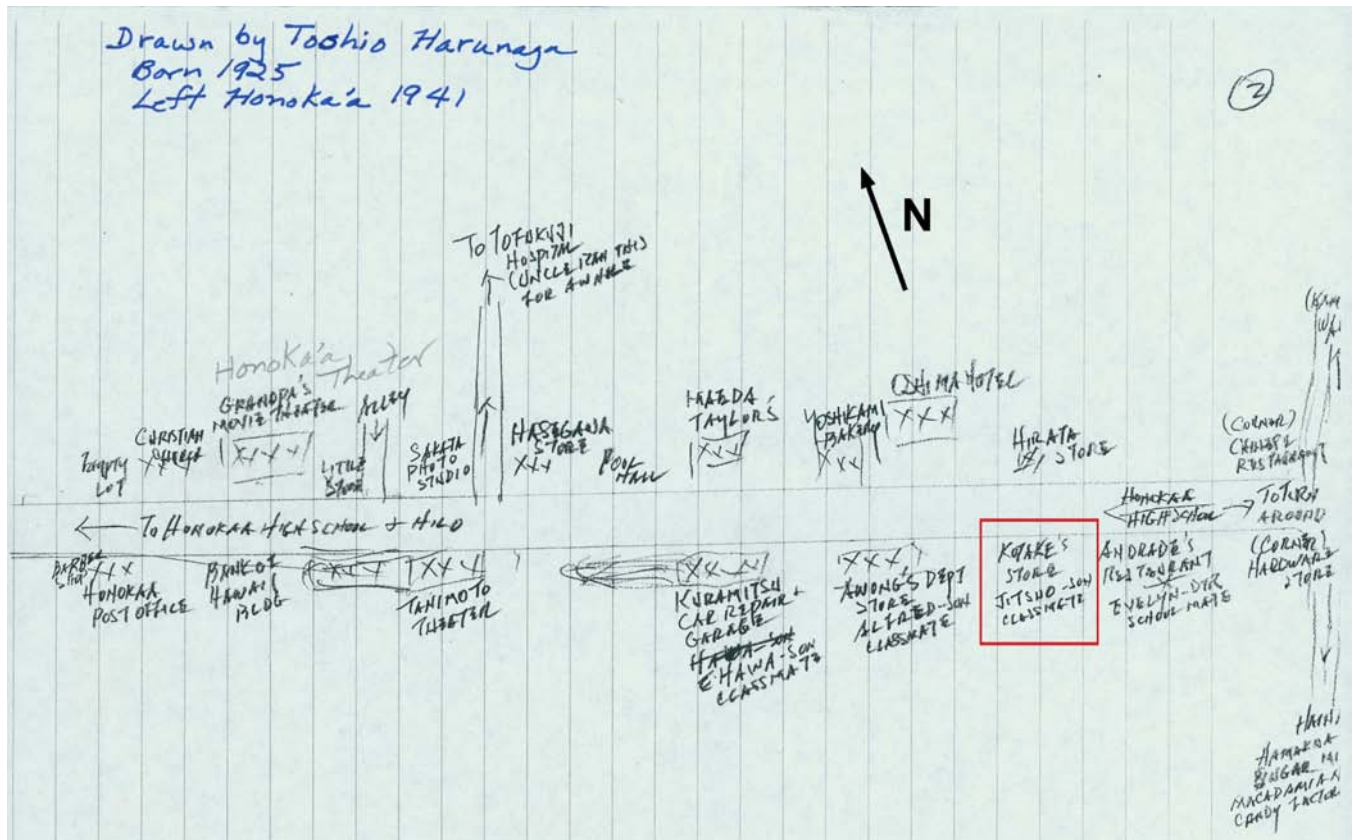 Drawn by Toshio Harunaga
Born 1925
Left Honoka'a 1941
2
N
To TOFUKUJI
HOSPITAL
(UNCLE
FOR AWHILE
Honoka'a
Theater
GRANDPA'S
MOVIE THEATER
ALLEY
EMPTY
LOT
CHRISTIAN
CHURCH
XXX
XXX
LITTLE
STORE
SAKATA
PHOTO
STUDIO
HASEGAWA
STORE
XXX
POOL
HALL
MAEDA
TAYLOR'S
XXX
YOSHIKAMI
BAKERY
XXX
OSHIMA HOTEL
XXX
HIRATA
STORE
(CORNER)
CHINESE
RESTAURANT
← TO HONOKAA HIGH SCHOOL + HILO
HONOKAA
HIGH SCHOOL
TO TURN
AROUND
BARBER
SHOP
XXX
HONOKAA
POST OFFICE
BANK OF
HAWAII
BLDG
XXX
XXX
TANIMOTO
THEETER
XXX
KURAMITSU
CAR REPAIR +
GARAGE
EHAWA-SON
CLASSMATE
XXX
AWONG'S DEPT
STORE
ALFRED-SON
CLASSMATE
KOTAKE'S
STORE
JITSUO-SON
CLASSMATE
ANDRADE'S
RESTAURANT
EVELYN-DTR
SCHOOL MATE
(CORNER)
HARDWARE
STORE
HAMAKUA
SUGAR MI
MACADAMIA N
CANDY FACTOR